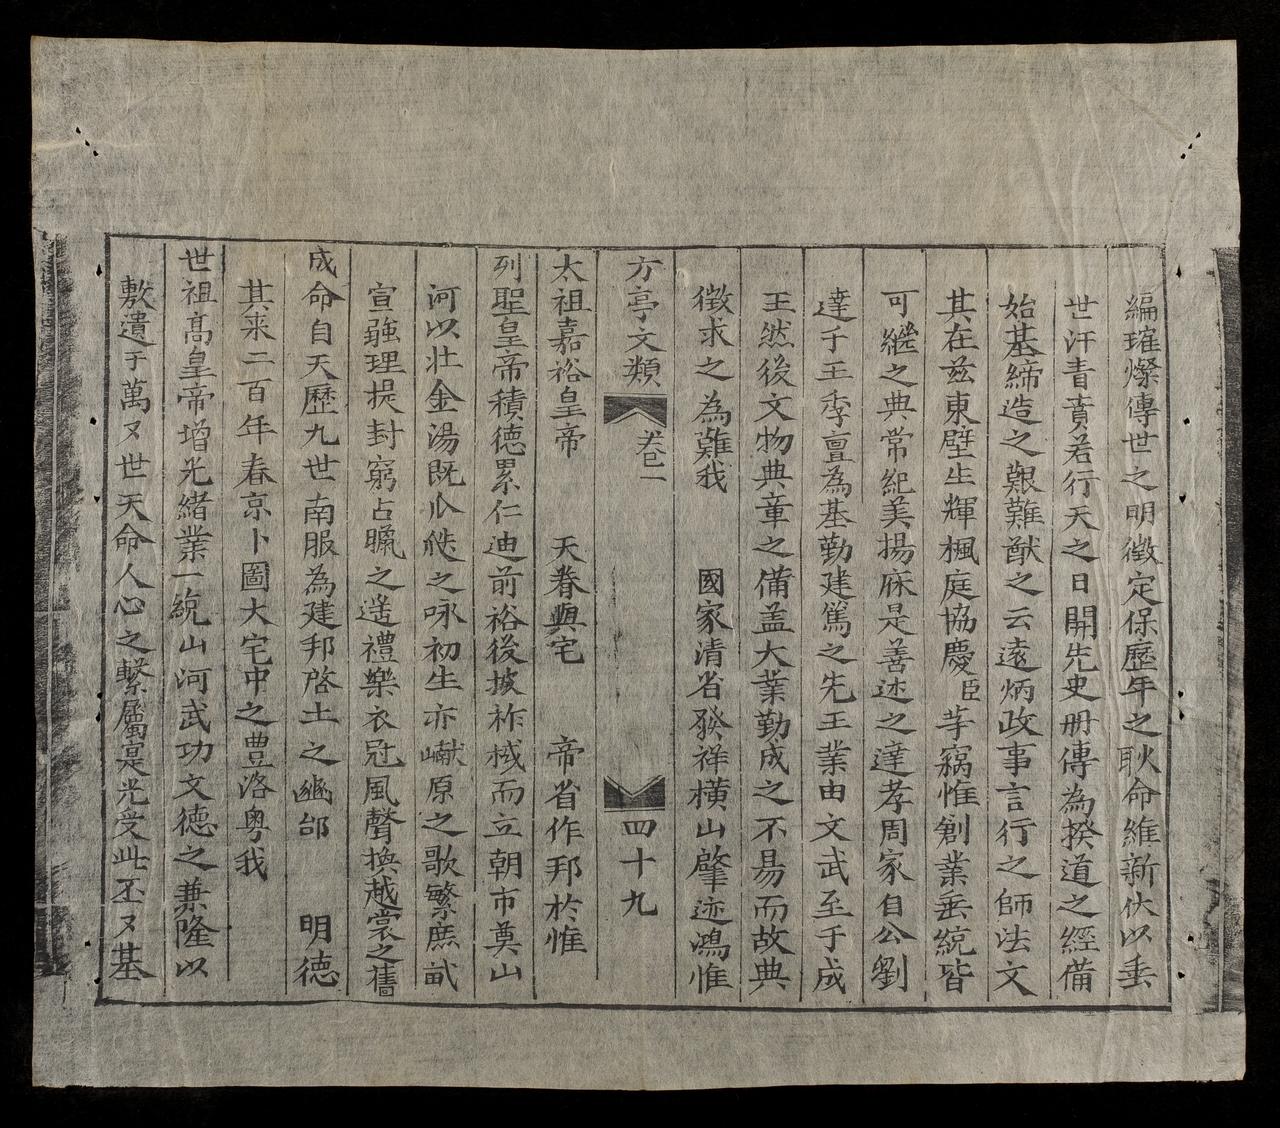 編璀燦傳世之明徵定保歷年之耿命維新伏以垂
世汗青賁若行天之日開先史冊傳為揆道之經備
始基締造之艱難猷之云遠炳政事言行之師法文
其在茲東壁生輝楓庭協慶臣等竊惟創業垂統皆
可繼之典常紀美揚庥是善述之達孝周家自公劉
達于王季亶為基勤建篤之先王業由文武至于成
王然後文物典章之備盖大業勤成之不易而故典
徵求之為難我 國家清省發祥橫山肇迹鴻惟
方亭文類 卷一 四十九
太祖嘉裕皇帝 天眷與宅 帝省作邦於惟
列聖皇帝積德累仁迪前裕後披柞棫而立朝市奠山
河以壮金湯既瓜瓞之咏初生亦巘原之歌繁庶畝
宣疆理提封窮占臘之遥禮樂衣冠風聲換越裳之舊
成命自天歷九世南服為建邦啓土之豳邰 明德
其来二百年春京卜圖大宅中之豊洛粵我
世祖高皇帝增光緒業一統山河武功文德之兼隆以
敷遺于萬又世天命人心之繫屬寔光受此丕又基